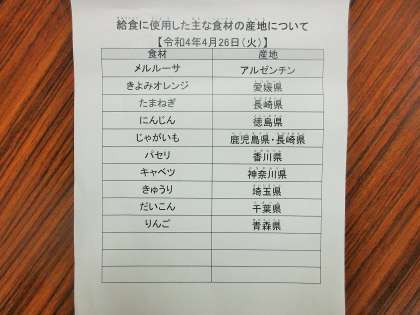 給食に使用した主な食材の産地について
【令和4年4月26日(火)】
食材 産地
メルルーサ アルゼンチン
きよみオレンジ 愛媛県
たまねぎ 長崎県
にんじん 徳島県
じゃがいも 鹿児島県・長崎県
パセリ 香川県
キャベツ 神奈川県
きゅうり 埼玉県
だいこん 千葉県
りんご 青森県